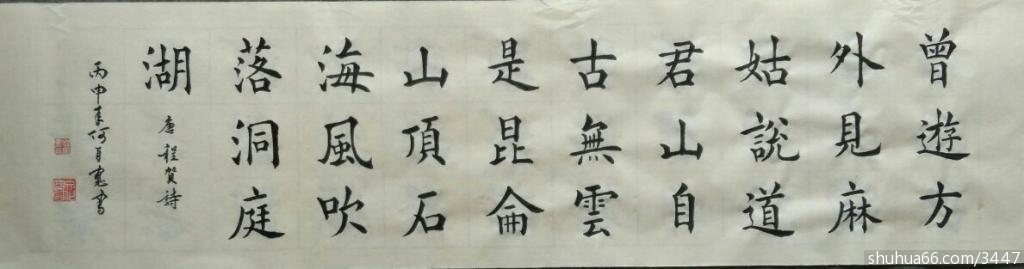 曾遊方
外見麻
姑説道
君山自
古無雲
是昆侖
山頂石
海風吹
落洞庭
湖
唐程賀詩
丙申年阿月憲書
shuhua66.com/3447